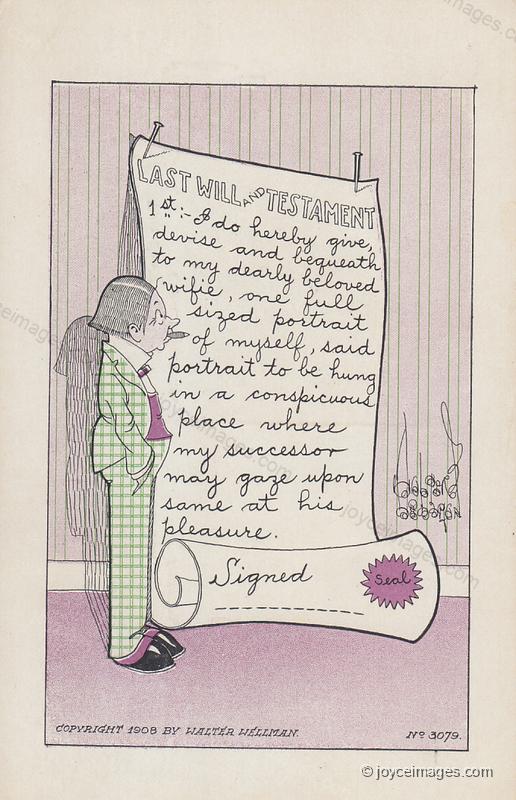 LAST WILL AND TESTAMENT
1st:- I do hereby give,
devise and bequeath
to my dearly beloved
wifie, one full
sized portrait
of myself, said
portrait to be hung
in a conspicuous
place where
my successor
may gaze upon
same at his
pleasure.
Signed
Seal
COPYRIGHT 1908 BY WALTER WELLMAN.
No 3079.
© joyceimages.com